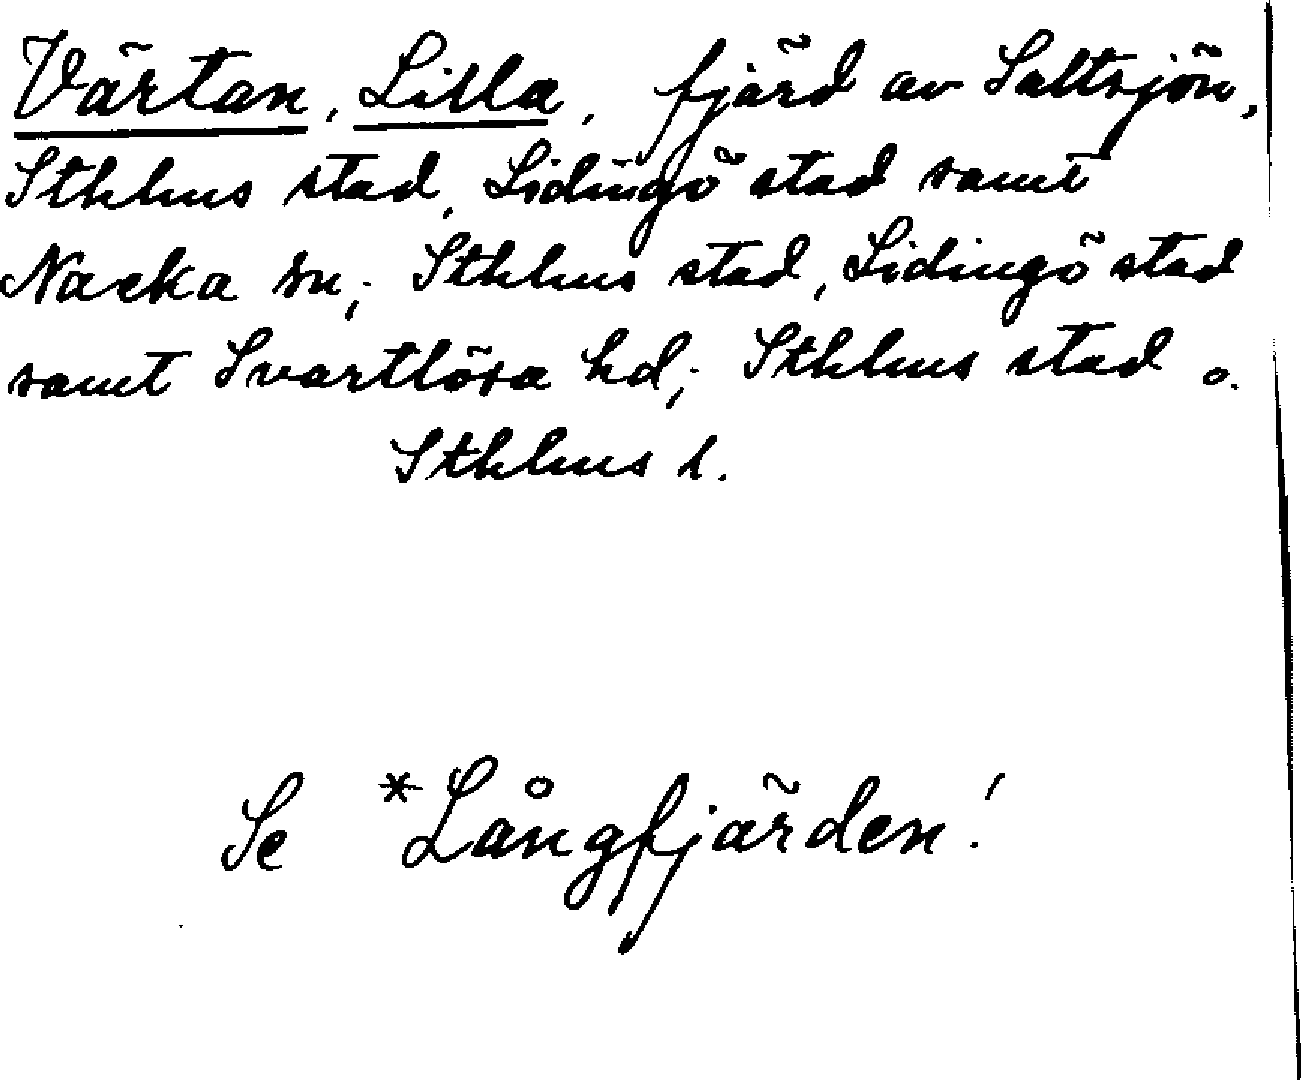 Värtan, Lilla, fjärd av Saltsjön,
Sthlms stad, Lidingö stad samt
Nacka sn; Sthlms stad, Lidingö stad
samt Svartlösa hd; Sthlms stad o.
Sthlms l.
Se *Långfjärden!